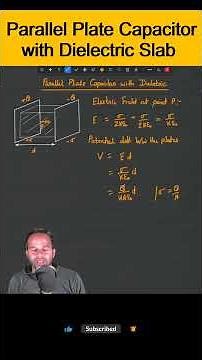 Parallel Plate Capacitor
with Dielectric Slab
Parallel Plate Capacitor with Dielectric
+Q
-Q
Electric Field at point P:-
E = σ/2Kε₀ + σ/2Kε₀ = σ/Kε₀
+σ
-σ
d
Potential diff b/w the plates
V = E d
= σ/Kε₀ d
= Q/AKε₀ d
σ = Q/A
Subscribed